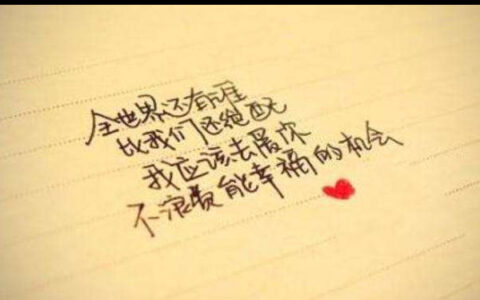 全世界还有谁
比我们还绝配
我应该去爱你
不浪费能幸福的机会